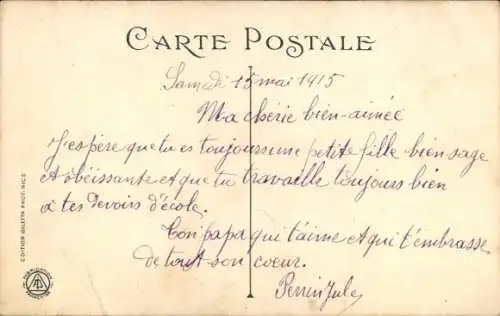 CARTE POSTALE
Samedi 15 mai 1915
Ma chérie bien-aimée
J'espère que tu es toujours une petite fille bien sage
et obéissante et que tu travaille toujours bien
à tes devoirs d'école.
Ton papa qui t'aime et qui t'embrasse
de tout son coeur.
Perrin Jules
EDITION GILETTA PHOT. NICE